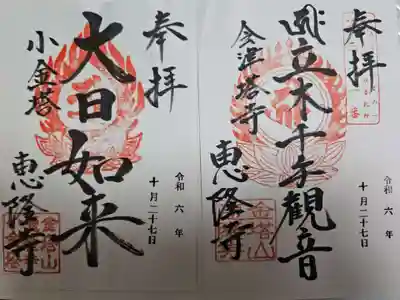 奉拝
立木千手観音
会津塔寺
恵隆寺
金塔山
令和 六 年
十月二十七日
奉拝
大日如来
小金塔
恵隆寺
金塔山
令和 六 年
十月二十七日